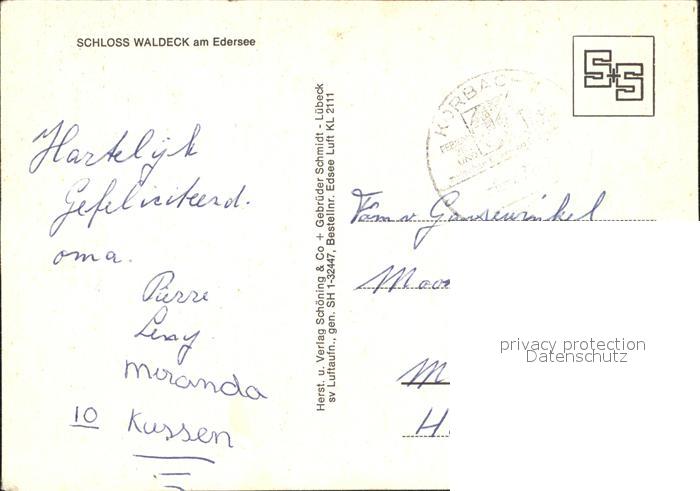 SCHLOSS WALDECK am Edersee
S+S
KORBACH
Hartelijk
Gefeliciteerd.
oma.
Pierre
Leny
Miranda
10 Kussen
Herst. u. Verlag Schöning & Co + Gebrüder Schmidt - Lübeck
sv Luftaufn., gen. SH 1-32447, Bestellnr. Edsee Luft KL 2111
Fam v Gansewinkel
privacy protection
Datenschutz
M
H